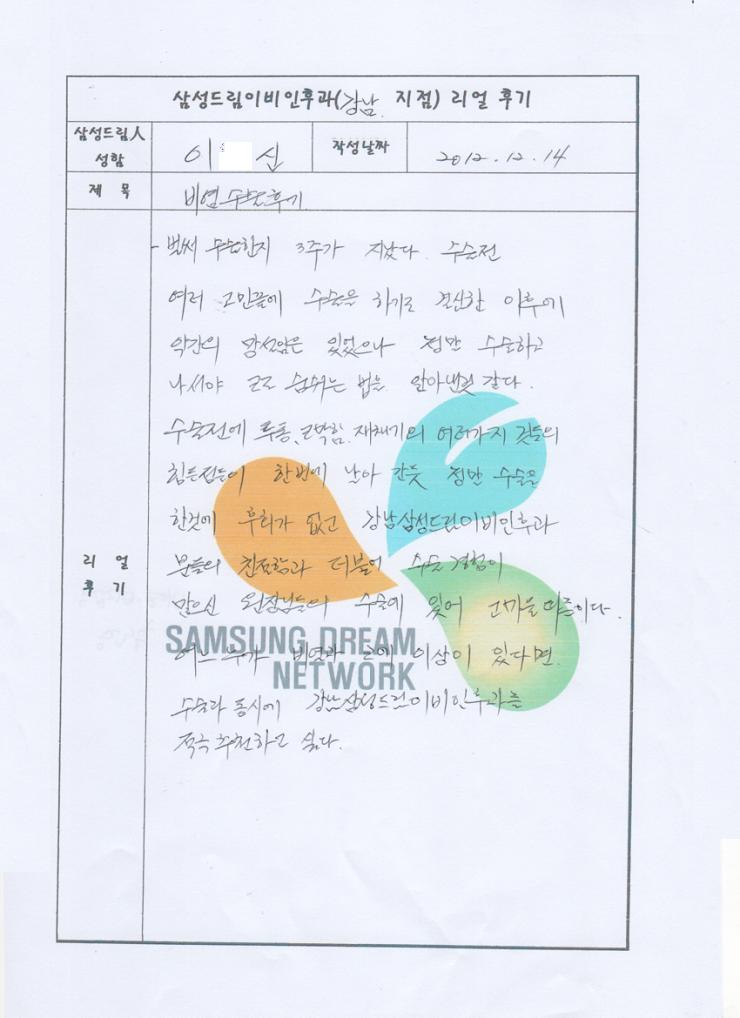 삼성드림이비인후과(강남 지점) 리얼 후기
삼성드림人
성함
이 신
작성날짜
2012.12.14
제 목
비염 수술후기
리 얼
후 기
- 벌써 수술한지 3주가 지났다. 수술전
여러 고민끝에 수술을 하기로 결심한 이후에
약간의 망설임은 있었으나 정말 수술하고
나서야 코로 숨쉬는 법을 알아낸것 같다.
수술전에 두통, 코막힘, 재채기의 여러가지 것들의
힘든점들이 한번에 날아 간듯 정말 수술을
한것에 후회가 없고 강남삼성드림이비인후과
분들의 친절함과 더불어 수술 경험이
많으신 원장님들의 수술에 있어 고마울따름이다.
어느 누가 비염과 코에 이상이 있다면
수술과 동시에 강남삼성드림이비인후과를
적극 추천하고 싶다.
SAMSUNG DREAM
NETWORK